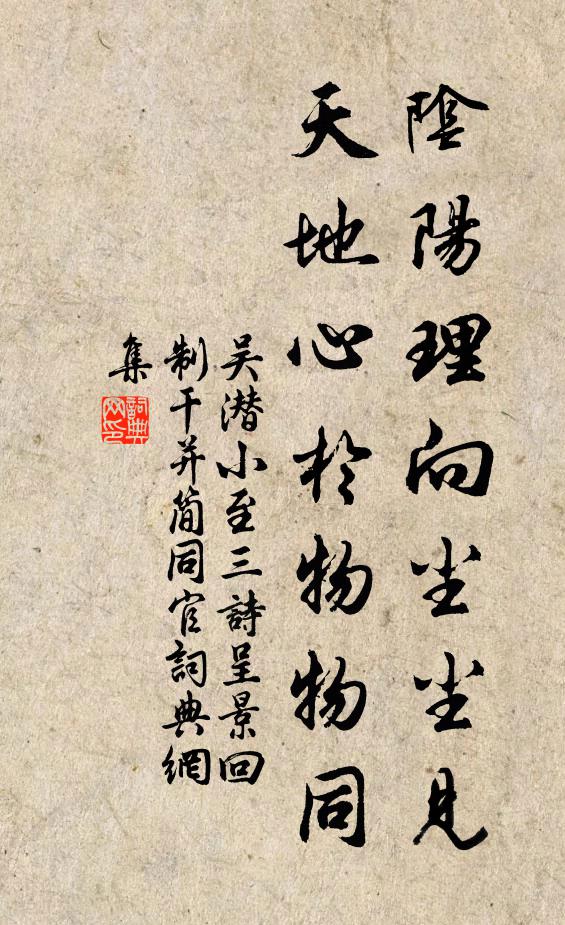 陰陽理向尘尘見
天地心於物物同
吴潜小至三詩呈景回
制干并简同官詞典網
集
詞典網印